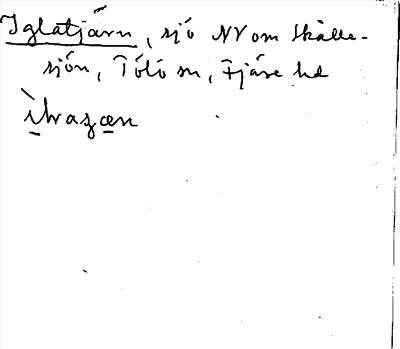 Iglatjärn, sjö NV om Skälle-
sjön, Tölö sn, Fjäre hd